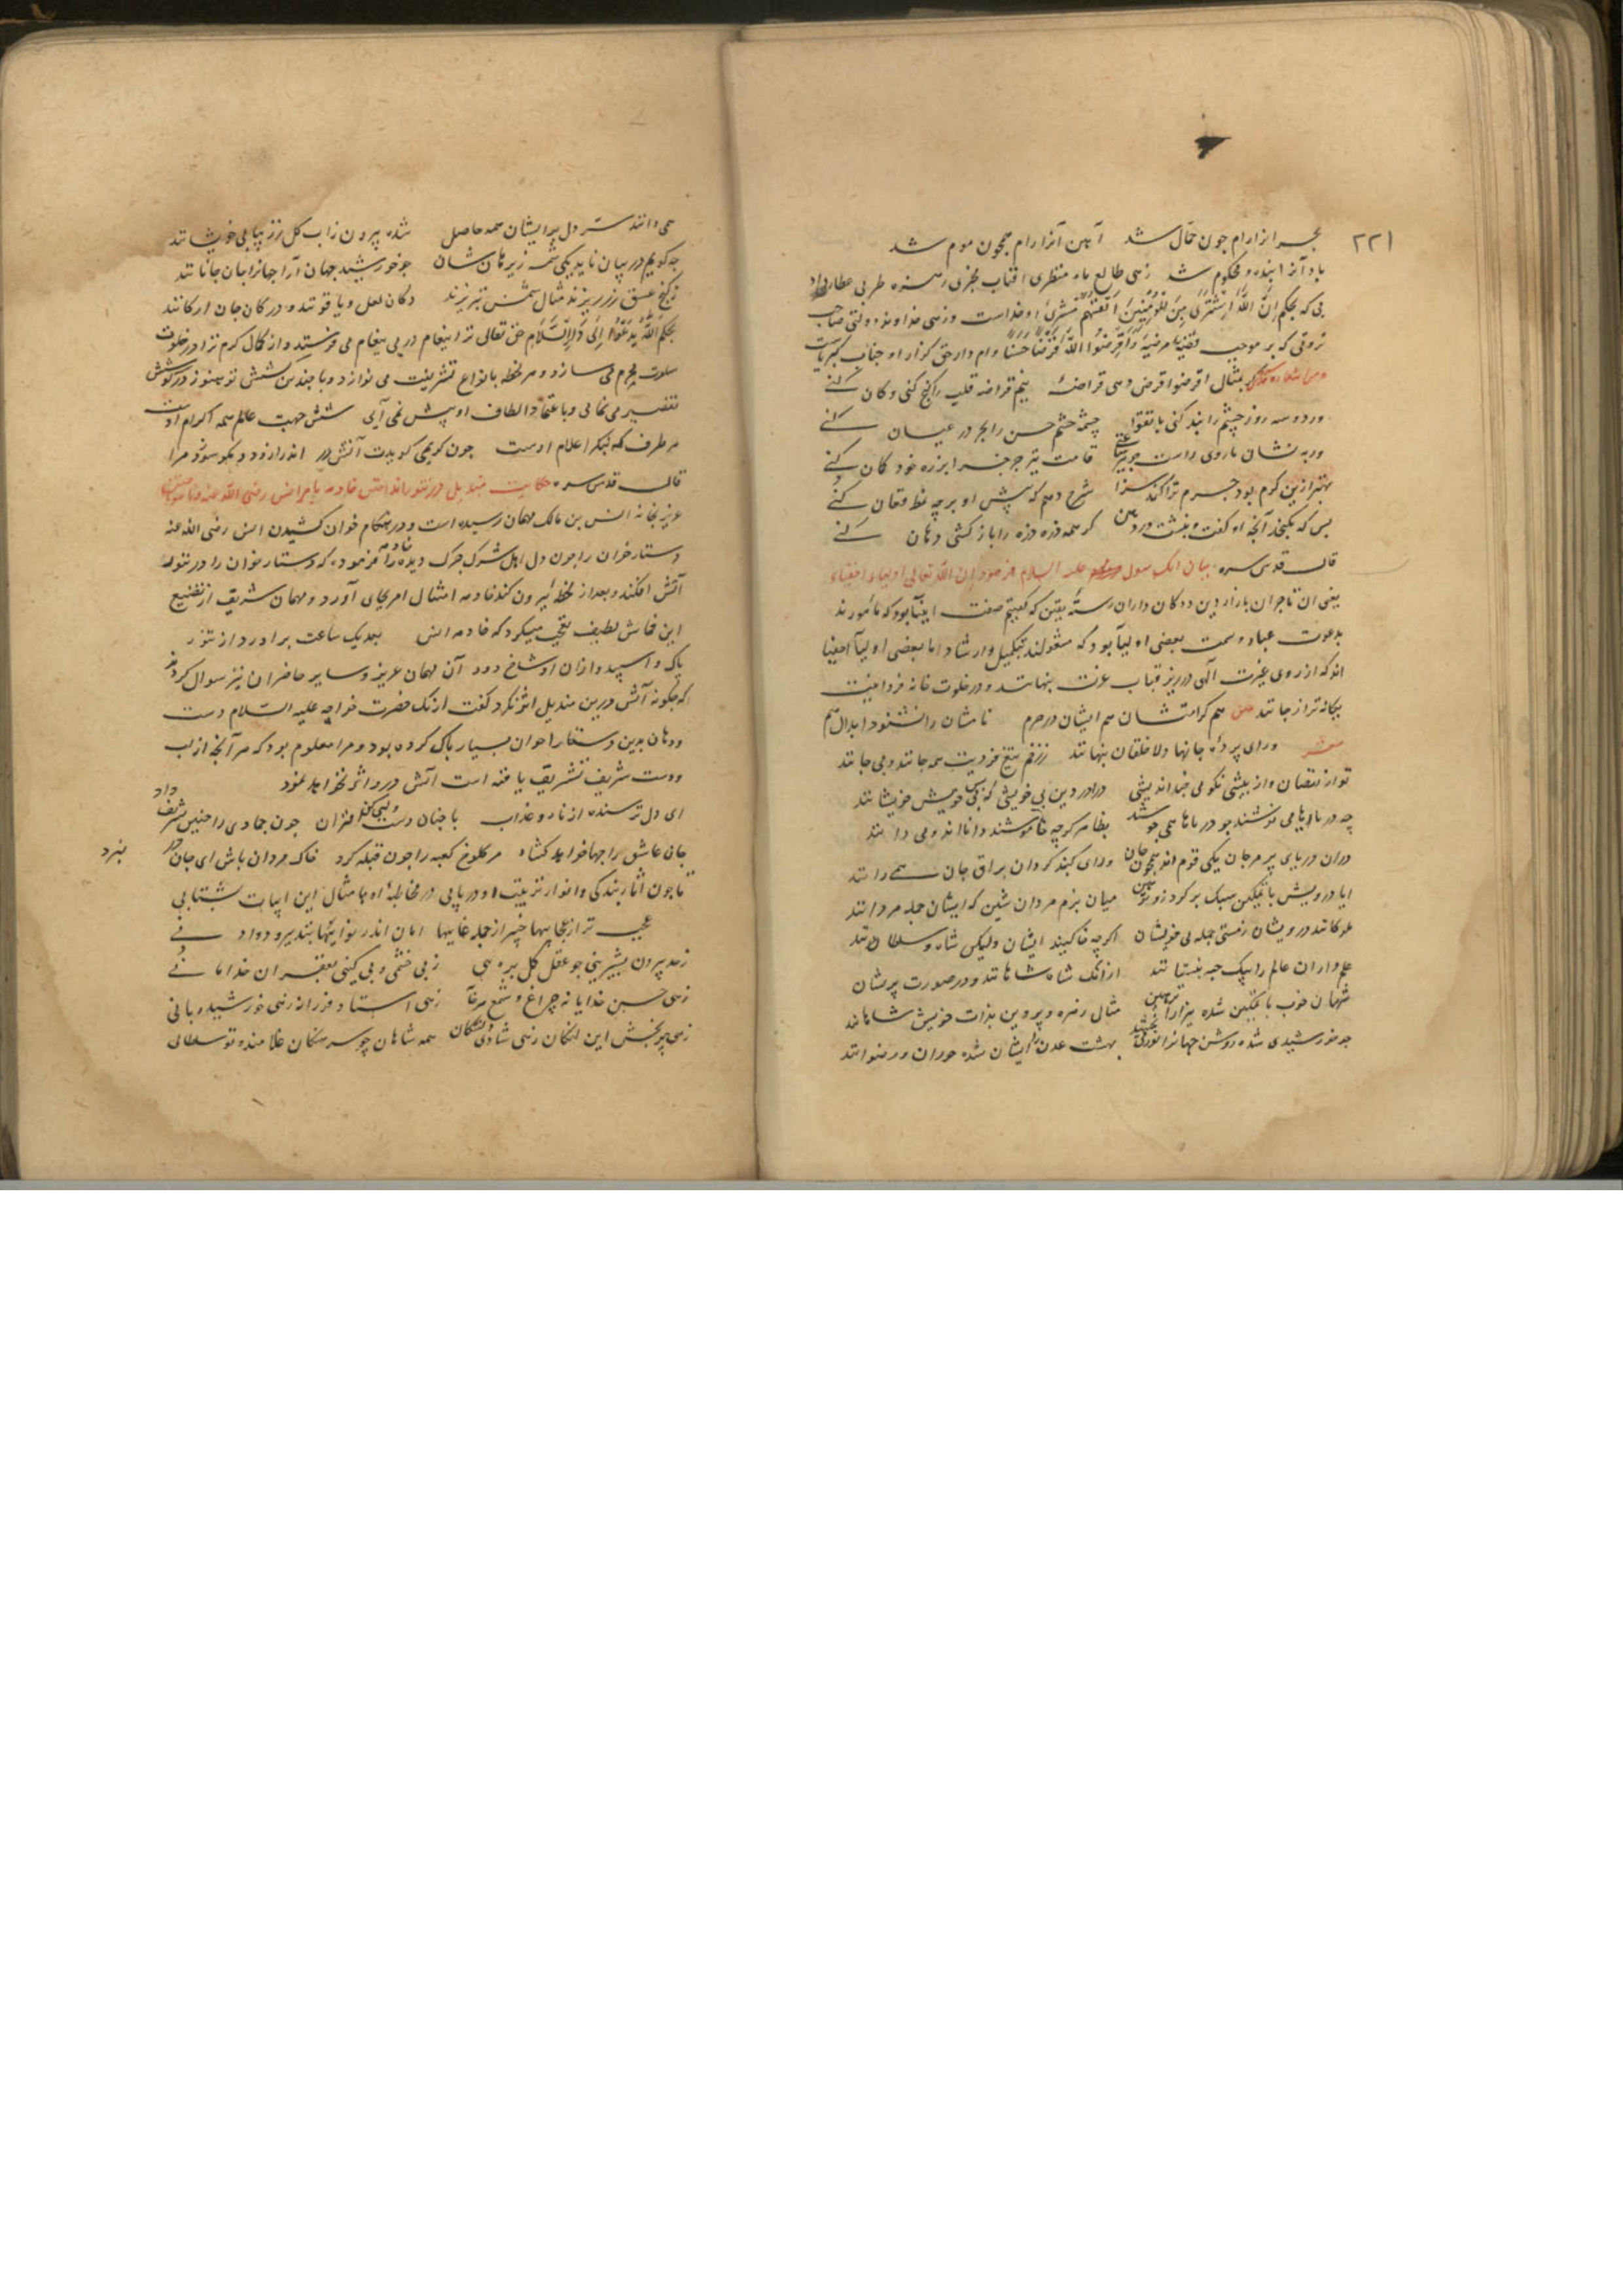 ٢٢١
بحر از ارام چون حمّال شد آهن آنرا رام همچون موم شد
باد آنرا بنده و محکوم شد زهی طالع ماه منظری افتاب مخبری زهره طربی عطارد
بی که بحکم اِنَّ اللّٰهَ اشْتَرَی مِنَ الْمُؤمِنینَ اَنْفُسَهُمْ مشتری او خداست و زهی خداوند دولتی صاحب
ثروتی که بر موجب قضیه مرضیه وَاَقْرِضُوا اللّٰهَ قَرْضًا حَسَنًا وام دار حق گزار او جناب کبریاست
بمثال اقرضوا قرض دهی قراضهٔ نیم قراضه قلب را گنج کنی و کان کنی
ور دو سه روز چشم را بند کنی باتقوا چشمه چشم حسن را بحر در عیان کنی
ور به نشان ما روی راست چو تیر قامت تیر چرخ را بر زه خود کمان کنی
بهتر ازین کرم بود جرم ترا گنه ترا شرح دهم که پیش او بر چه نمط فغان کنی
بس که نگنجد آنچه او گفت و نبشت در دهن گر همه ذره ذره را باز کشی دهان کنی
قال قدس سره بیان آنک رسول علیه السلام فرمود ان الله تعالی اولیاء اخفیاء
یعنی ان تاجران بازار دین و دکان داران رستهٔ یقین که گفتیم صفت انبیا بود که مأمورند
بدعوت عباد و سمت بعضی اولیا بود که مشغولند بتکمیل و ارشاد اما بعضی اولیا اصفیا
اند که از روی غیرت الهی در زیر قباب عزت پنهانند و در خلوت خانه فردانیت
بیگانه تر از جانند هم کرامتشان هم ایشان در حرم نامشان را نشنود ابدال هم
شعر ورای پردهٔ جانها دلا خلقان پنهانند ز زخم تیغ فردیت همه جانند و بی جانند
تو از نقصان و از بیشی نگویی چند اندیشی درآ در دین بی خویشی که بس بی خویش خویشانند
چه دریاها می نوشند چو دریاها همی جوشند بظاهر گرچه خاموشند دانااند و می دانند
در ان دریای پر مرجان یکی قوم اند همچون جان ورای گنبد گردان براق جان همی رانند
ایا درویش با تمکین سبک بر گرد زوتر هین میان بزم مردان شین که ایشان جمله مردانند
ملوکانند درویشان ز مستی جمله بی خویشان اگرچه خاکیند ایشان ولیکن شاه و سلطانند
علم داران عالم را به یک جبه بنستانند از انک شاه شاهانند و در صورت پریشان
شهان خوب با تمکین شده بیزار از هین مثال زهره و پروین بذات خویش شاهانند
چو خورشیدی شده روشن جهان را نور می بخشند بهشت عدن را ایشان شده حوران و رضوانند
همی دانند سر دل بر ایشان همه حاصل شده بیرون ز آب و گل ز زیبایی خوشانند
چه گویم در بیان ناید یکی شمه زبرهانشان چو خورشید جهان آرا جهان را جان جانانند
ز گنج عشق زر ریزند مثال شمس تبریزند دکان لعل و یاقوتند و در کان جان ارکانند
بحکم اَللّٰهُ یَدْعُوا اِلٰی دَارِالسَّلَامِ حق تعالی ترا پیغام در پی پیغام می فرستد و از کمال کرم ترا در خلوت
سلوت محرم می سازد و هر لحظه بانواع تشریفت می نوازد و با چندین کشش تو هنوز در کوشش
تقصیر می نمایی و با اعتماد الطاف او پیش نمی آیی شش جهت عالم همه اکرام اوست
هر طرف که بنگری اعلام اوست چون کریمی گویدت آتش در اندر آ زود و مگو سوزد مرا
قال قدس سره حکایت مندیل در تنور انداختن خادمه بامر انس رضی الله عنه
عزیزی بخانه انس بن مالک مهمان رسیده است و در هنگام خوان کشیدن انس رضی الله عنه
دستار خوان را چون دل اهل شرک چرک دیده خادمه را فرموده که دستار خوان را در تنور
آتش افکند و بعد از لحظهٔ بیرون کند خادمه امتثال امر بجای آورد و مهمان شریف از تضییع
این قماش لطیف تعجب میکرد که خادمه انس بعد یک ساعت برآورد از تنور
پاک و اسپید و ازان اوساخ دور آن مهمان عزیز و سایر حاضران نیز سوال کردند
که چگونه آتش درین مندیل اثر نکرد گفت از انک حضرت خواجه علیه السلام دست
و دهان بدین دستار خوان بسیار پاک کرده بود و مرا معلوم بود که هر آنچه از لب
و دست شریف تشریف یافته است آتش درو اثر نخواهد نمود
ای دل ترسنده از نار و عذاب با چنان دست و لبی کن اقتراب چون جمادی را چنین تشریف داد
جان عاشق را چها خواهد گشاد مر کلوخ کعبه را چون قبله کرد خاک مردان باش ای جان در نبرد
تا چون آثار بندگی و انوار تربیت او دریابی در مخاطبهٔ او با مثال این ابیات بشتابی
عجب تر از عجایبها خبیر از جمله غایبها امان اندر نوایبها بتدبیر و دوا دانی
ز حد بیرون بشیرینی چو عقل کل بره بینی ز بی خشمی و بی کینی بغفران خدا مانی
زهی حسن خدایانه چراغ و شمع هر خانه زهی استاد فرزانه زهی خورشید ربانی
زهی پربخش این لنگان زهی شادی دلتنگان همه شاهان چو سرهنگان غلامند و تو سلطانی